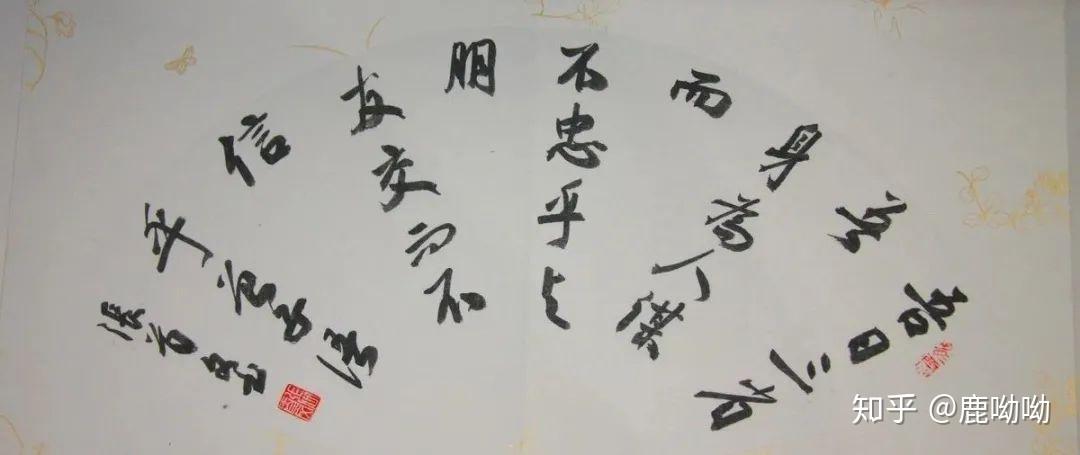 吾日三省
吾
身為人谋
而
不忠乎与
朋
友交而不
信
乎曾子语
知乎 @鹿呦呦